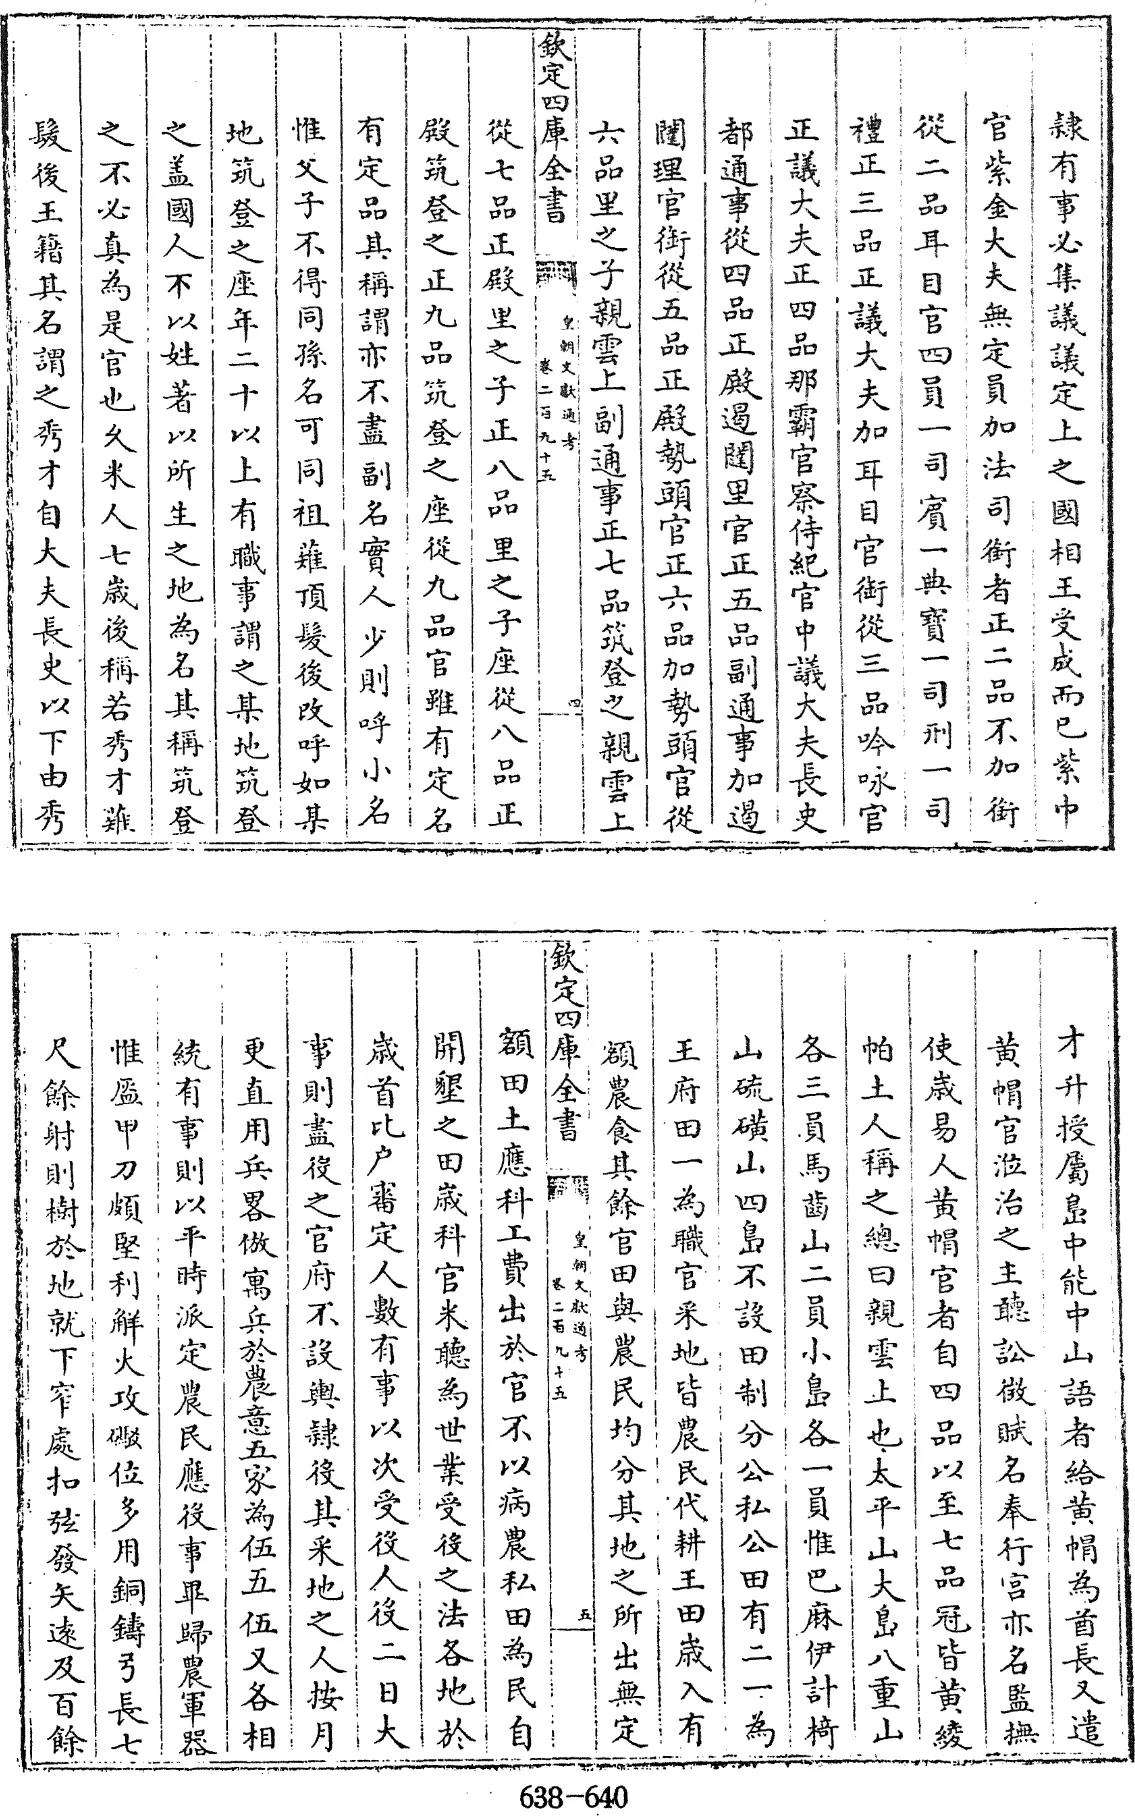 隷有事必集議議定上之國相王受成而已紫巾
官紫金大夫無定員加法司銜者正二品不加銜
從二品耳目官四員一司賔一典寳一司刑一司
禮正三品正議大夫加耳目官銜從三品吟咏官
正議大夫正四品那霸官察侍紀官中議大夫長史
都通事從四品正殿遏闥里官正五品副通事加遏
闥理官銜從五品正殿勢頭官正六品加勢頭官從
六品里之子親雲上副通事正七品筑登之親雲上
欽定四庫全書
皇朝文獻通考
卷二百九十五
四
從七品正殿里之子正八品里之子座從八品正
殿筑登之正九品筑登之座從九品官雖有定名
有定品其稱謂亦不盡副名實人少則呼小名
惟父子不得同孫名可同祖薙頂髮後改呼如某
地筑登之座年二十以上有職事謂之某地筑登
之盖國人不以姓著以所生之地為名其稱筑登
之不必真為是官也久米人七歳後稱若秀才薙
髮後王籍其名謂之秀才自大夫長史以下由秀
才升授屬島中能中山語者給黄帽為酋長又遣
黄帽官涖治之主聽訟徴賦名奉行官亦名監撫
使歳易人黄帽官者自四品以至七品冠皆黄綾
帕土人稱之總曰親雲上也太平山大島八重山
各三員馬齒山二員小島各一員惟巴麻伊計椅
山硫磺山四島不設田制分公私公田有二一為
王府田一為職官采地皆農民代耕王田歳入有
額農食其餘官田與農民均分其地之所出無定
欽定四庫全書
皇朝文獻通考
卷二百九十五
五
額田土應科工費出於官不以病農私田為民自
開墾之田歳科官米聽為世業受役之法各地於
歳首比户審定人數有事以次受役人役二日大
事則盡役之官府不設輿隷役其采地之人按月
更直用兵畧倣寓兵於農意五家為伍五伍又各相
統有事則以平時派定農民應役事畢歸農軍器
惟盔甲刀頗堅利鮮火攻礮位多用銅鑄弓長七
尺餘射則樹於地就下窄處扣弦發矢遠及百餘
638-640